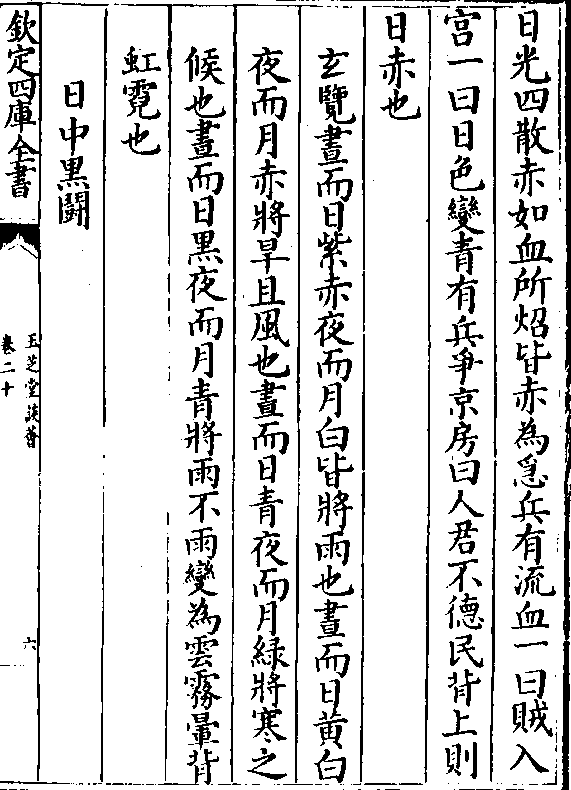 日光四散赤如血所炤皆赤為急兵有流血一曰賊入
宫一曰日色變青有兵爭京房曰人君不德民背上則
日赤也
玄覽晝而日紫赤夜而月白皆將雨也晝而日黄白
夜而月赤將旱且風也晝而日青夜而月緑將寒之
候也晝而日黒夜而月青將雨不雨變為雲霧暈背
虹霓也
日中黒鬬
欽定四庫全書
玉芝堂談薈
卷二十
六